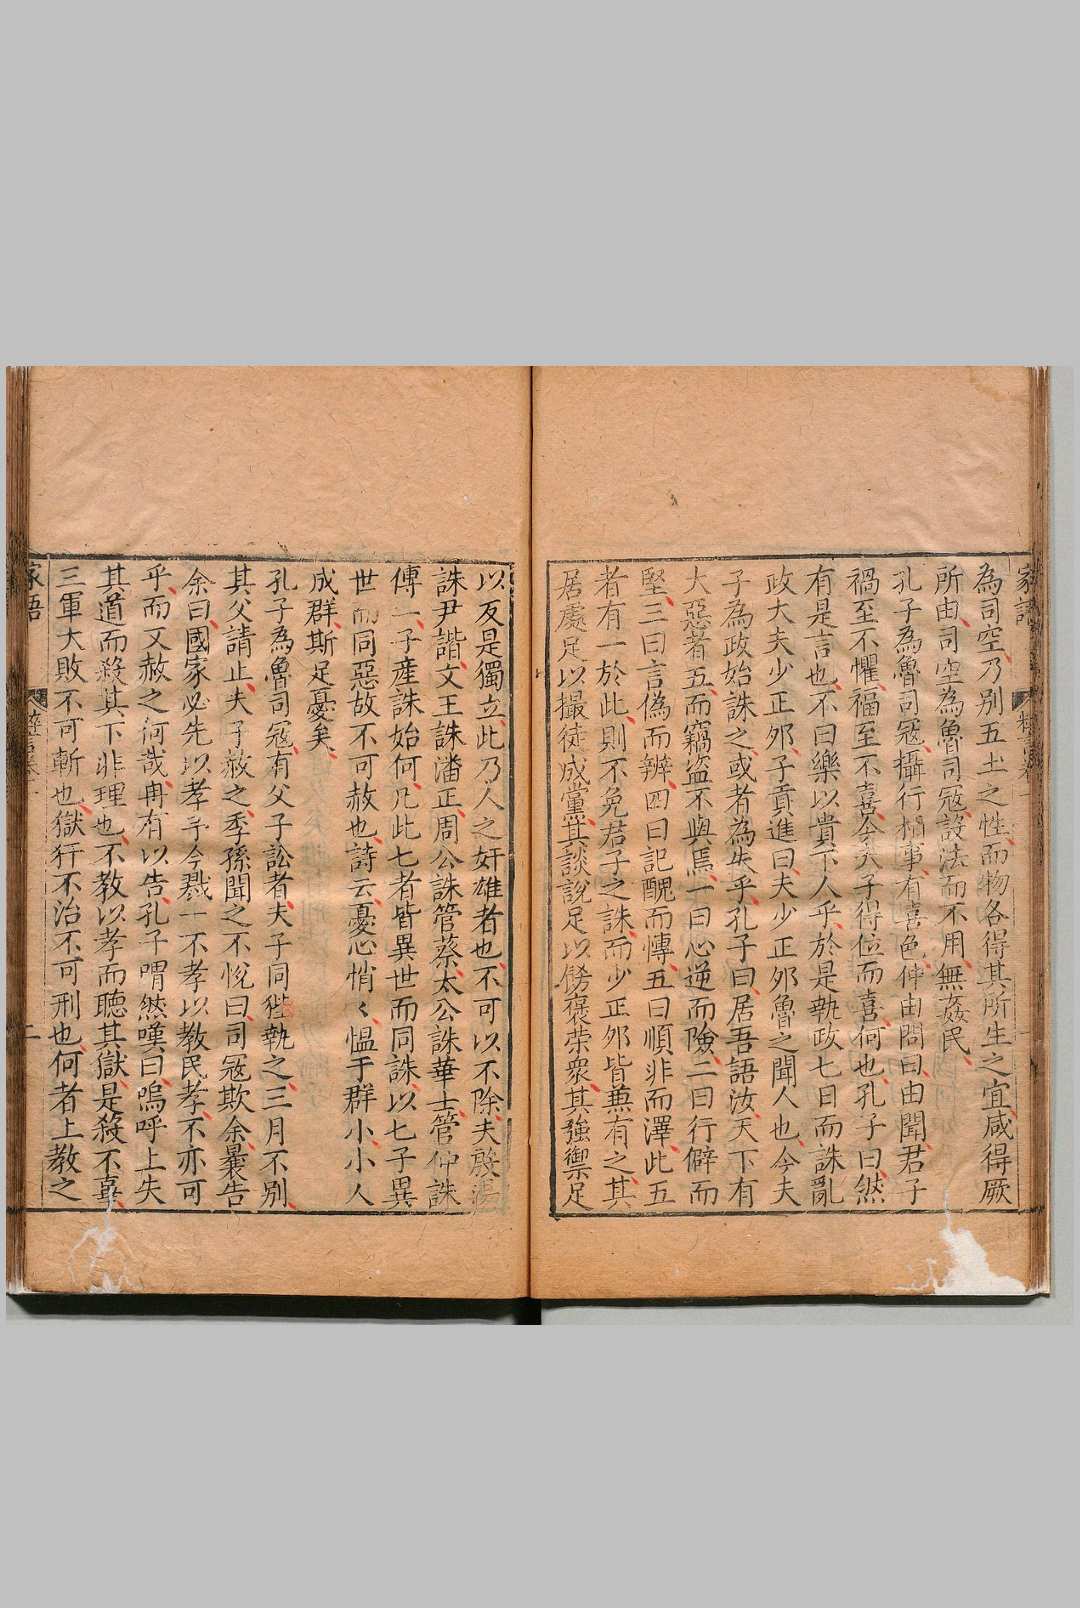 為司空乃別五土之性而物各得其所生之宜咸得厥
所由司空為魯司寇設法而不用無姦民
孔子為魯司寇攝行相事有喜色仲由問曰由聞君子
禍至不懼福至不喜今夫子得位而喜何也孔子曰然
有是言也不曰樂以貴下人乎於是執政七日而誅亂
政大夫少正卯子貢進曰夫少正卯魯之聞人也今夫
子為政始誅之或者為失乎孔子曰居吾語汝天下有
大惡者五而竊盜不與焉一曰心逆而險二曰行僻而
堅三曰言偽而辨四曰記醜而愽五曰順非而澤此五
者有一於此則不免君子之誅而少正卯皆兼有之其
居處足以撮徒成黨其談說足以褒榮衆其強禦足
以反是獨立此乃人之奸雄者也不可以不除夫殷湯
誅尹諧文王誅潘正周公誅管蔡太公誅華士管仲誅
傅一子産誅始何凡此七者皆異世而同誅以七子異
世而同惡故不可赦也詩云憂心悄〻愠于群小小人
成群斯足憂矣
孔子為魯司寇有父子訟者夫子同狴執之三月不別
其父請止夫子赦之季孫聞之不悅曰司寇欺余曩告
余曰國家必先以孝予今戮一不孝以教民孝不亦可
乎而又赦之何哉冉有以告孔子喟然嘆曰嗚呼上失
其道而殺其下非理也不教以孝而聽其獄是殺不辜
三軍大敗不可斬也獄犴不治不可刑也何者上教之
家語
二